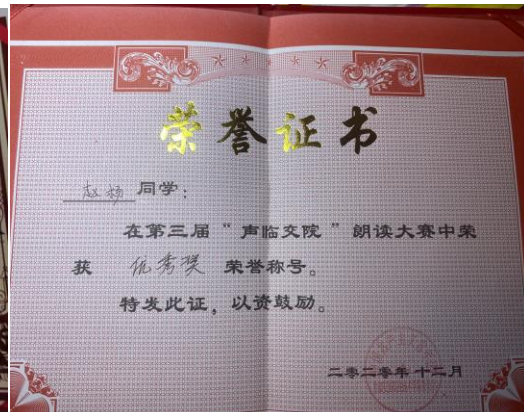 荣誉证书
赵杨 同学:
在第三届"声临交院"朗读大赛中荣
获 优秀奖 荣誉称号。
特发此证，以资鼓励。
二零二零年十二月